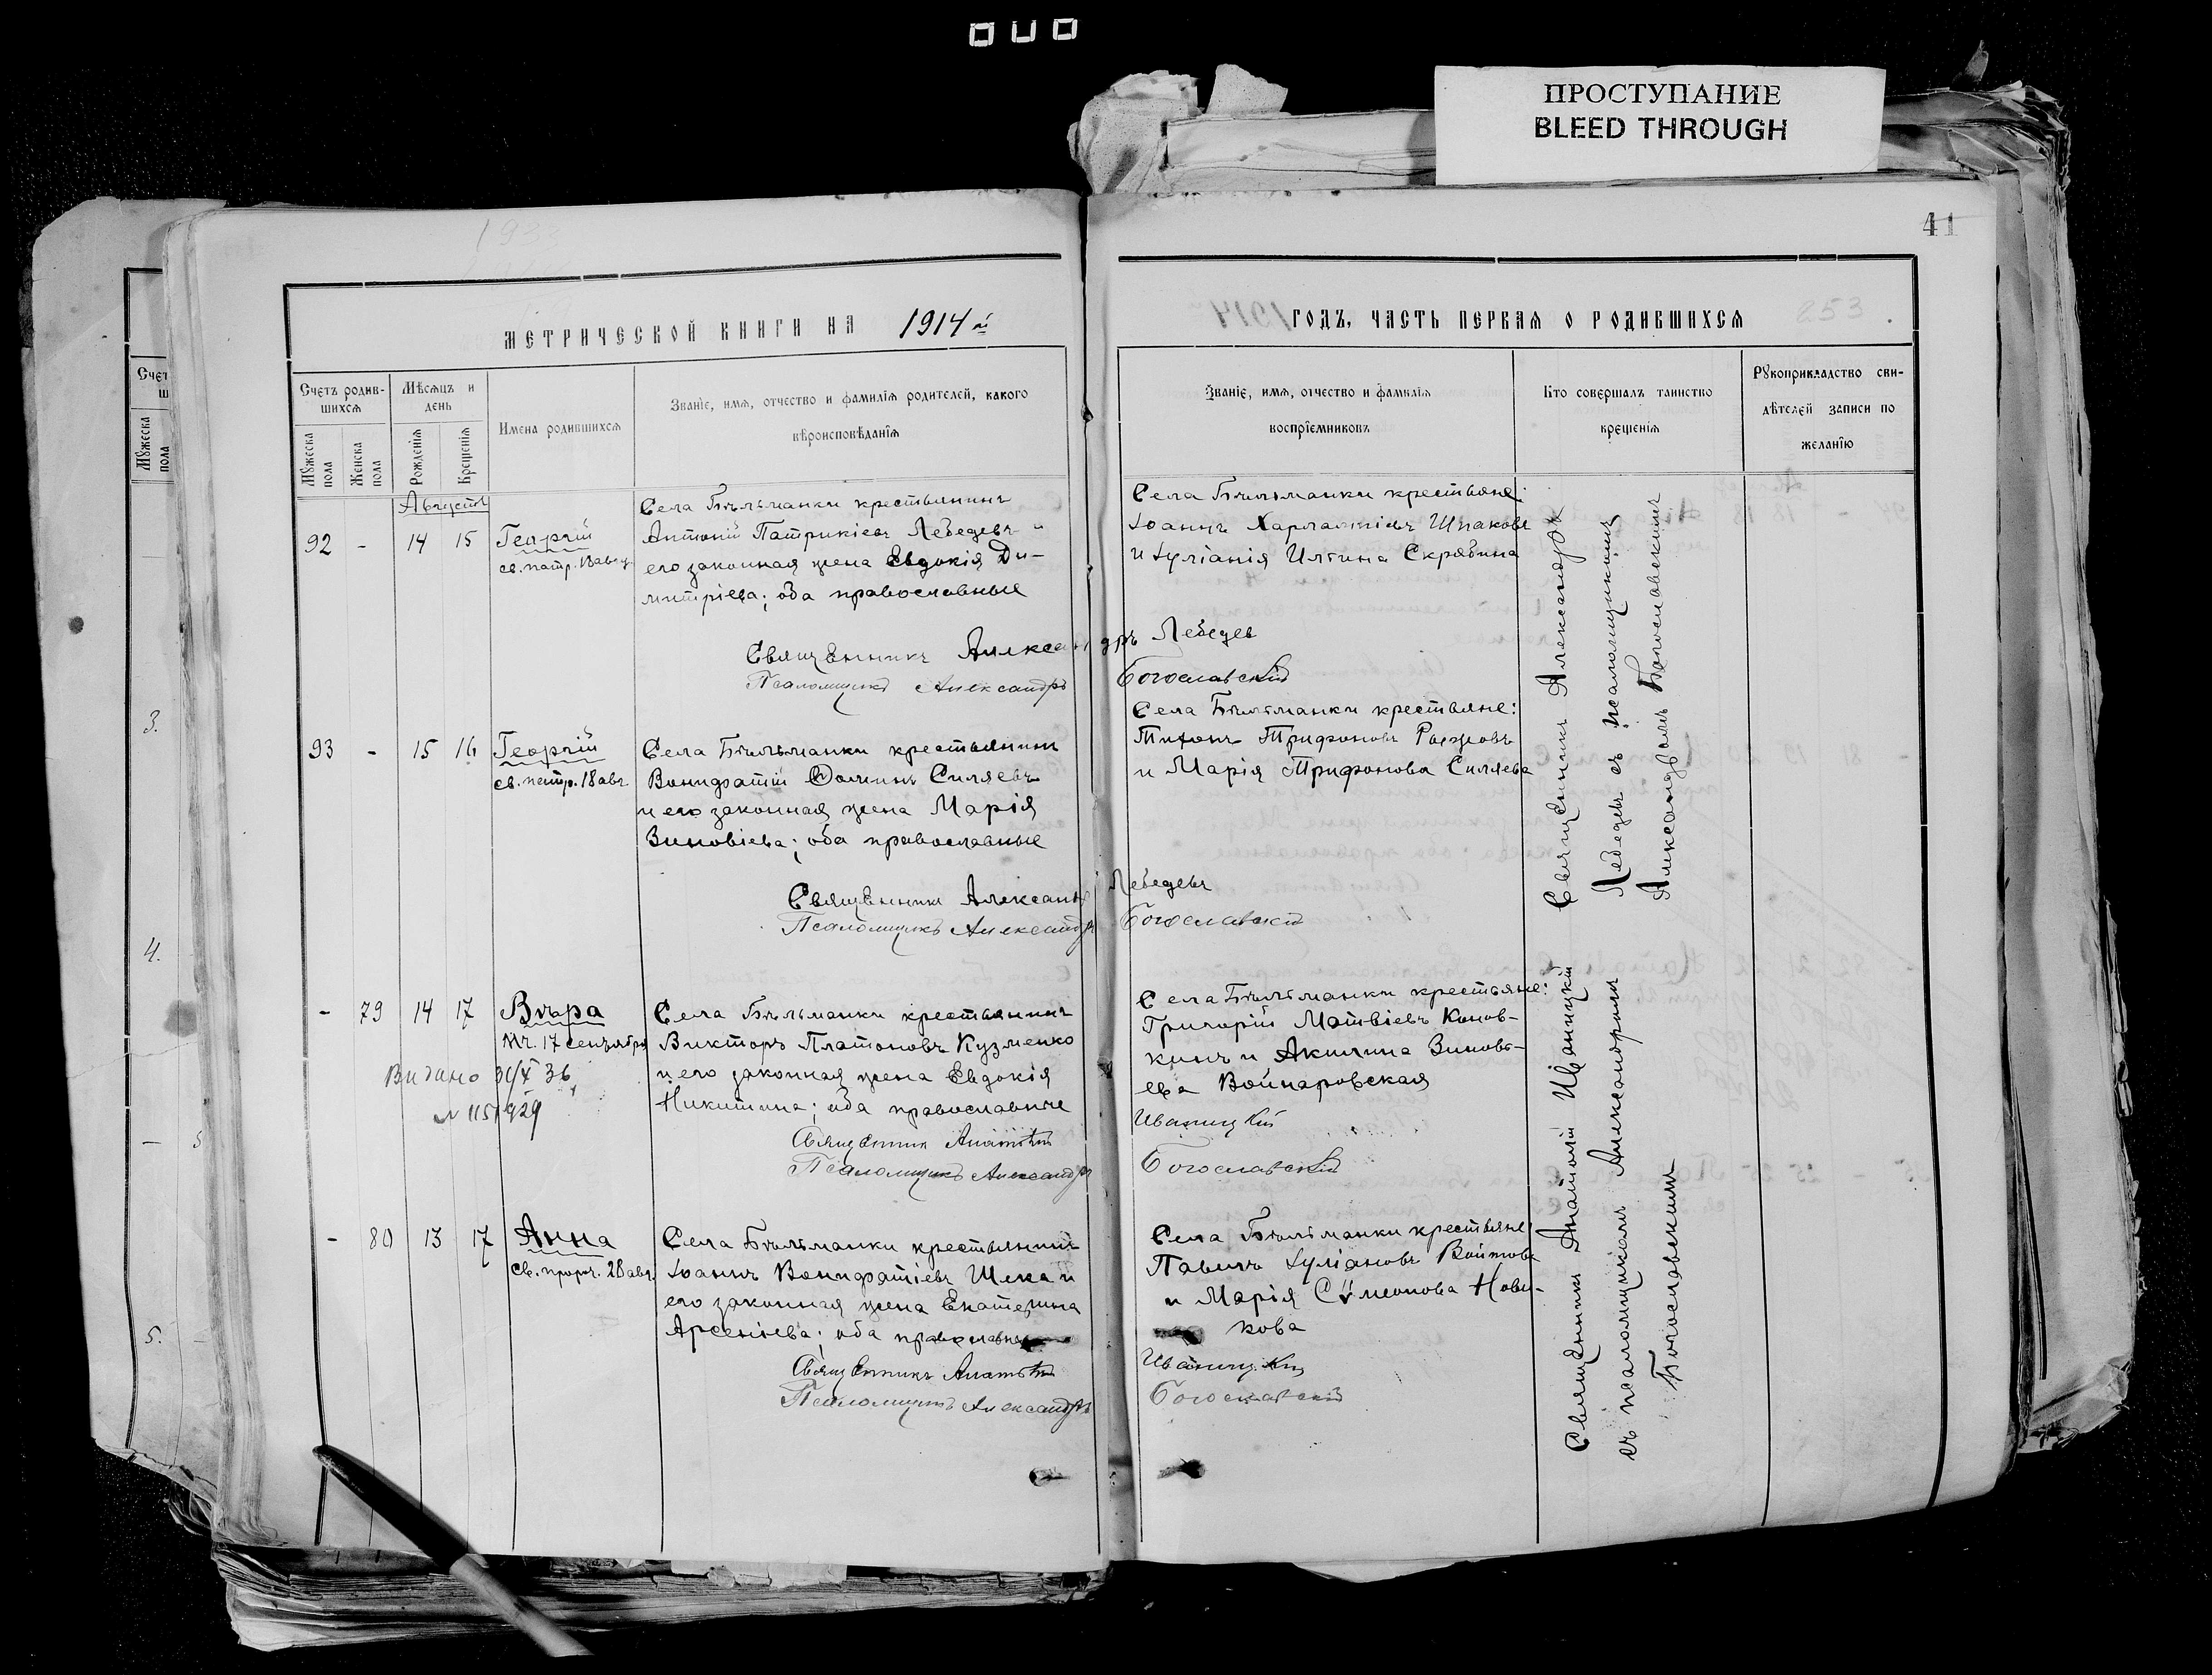 ПРОСТУПАНИЕ
BLEED THROUGH
41
МЕТРИЧЕСКОЙ КНИГИ НА 1914й
Счетъ родив-
шихся
Мѣсяцъ и
день
Имена родившихся
Званіе, имя, отчество и фамилія родителей, какого
вѣроисповѣданія
Мужеска
пола
Женска
пола
Рожденія
Крещенія
Августъ
92 - 14 15
Георгій
св. патр. 18 авг.
Села Бѣльманки крестьянинъ
Антоній Патрикіевъ Лебедевъ и
его законная жена Евдокія Ди-
митріева; оба православные
Священникъ Александръ Лебедев
Псаломщикъ Александръ Богославскій
93 - 15 16
Георгій
св. патр. 18 авг.
Села Бѣльманки крестьянинъ
Вонифатій Ѳоминъ Силяевъ
и его законная жена Марія
Зиновіева; оба православные
Священникъ Александръ Лебедевъ
Псаломщикъ Александръ Богославскій
- 79 14 17
Вѣра
мч. 17 сентября
Видано
N 1151929
Села Бѣльманки крестьянинъ
Викторъ Платоновъ Кузменко
и его законная жена Евдокія
Никитина; оба православные
Священникъ Анатолій Иваницкій
Псаломщикъ Александръ Богославскій
- 80 13 17
Анна
св. прор. 28 авг.
Села Бѣльманки крестьянинъ
Іоаннъ Вонифатіевъ Шека и
его законная жена Екатерина
Арсеніева; оба православные
Священникъ Анатолій Иваницкій
Псаломщикъ Александръ Богославскій
ГОДЪ, ЧАСТЬ ПЕРВАЯ О РОДИВШИХСЯ
253
Званіе, имя, отчество и фамилія
воспріемниковъ
Кто совершалъ таинство
крещенія
Рукоприкладство сви-
дѣтелей записи по
желанію
Села Бѣльманки крестьяне:
Іоаннъ Харлампіевъ Шпаковъ
и Іуліанія Ильина Скрябина
Села Бѣльманки крестьяне:
Тихонъ Трифоновъ
и Марія Трифонова Силяева
Села Бѣльманки крестьяне:
Григорій Матвіевъ Конов-
кинъ и Акилина Зиновь-
ева Войнаровская
Села Бѣльманки крестьяне:
Павелъ Іуліановъ Войтовъ
и Марія Сѵмеонова Нови-
кова
Священникъ Александръ
Лебедевъ съ псаломщикомъ
Александромъ Богославскимъ
Священникъ Анатолій Иваницкій
съ псаломщикомъ Александромъ
Богославскимъ
Счет
ш
Мужеска
пола
3.
4.
5.